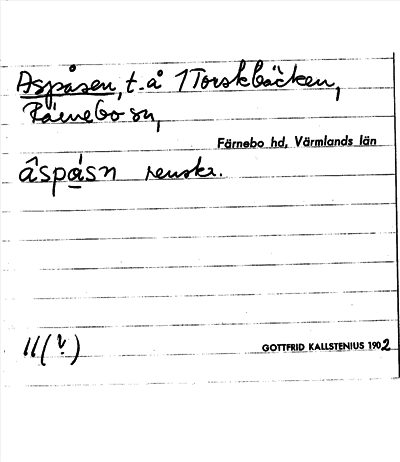 Aspåsen, t. å 1 Torskbäcken,
Färnebo sn,
Färnebo hd, Värmlands län
âspåsn renskr.
11(?)
GOTTFRID KALLSTENIUS 1902